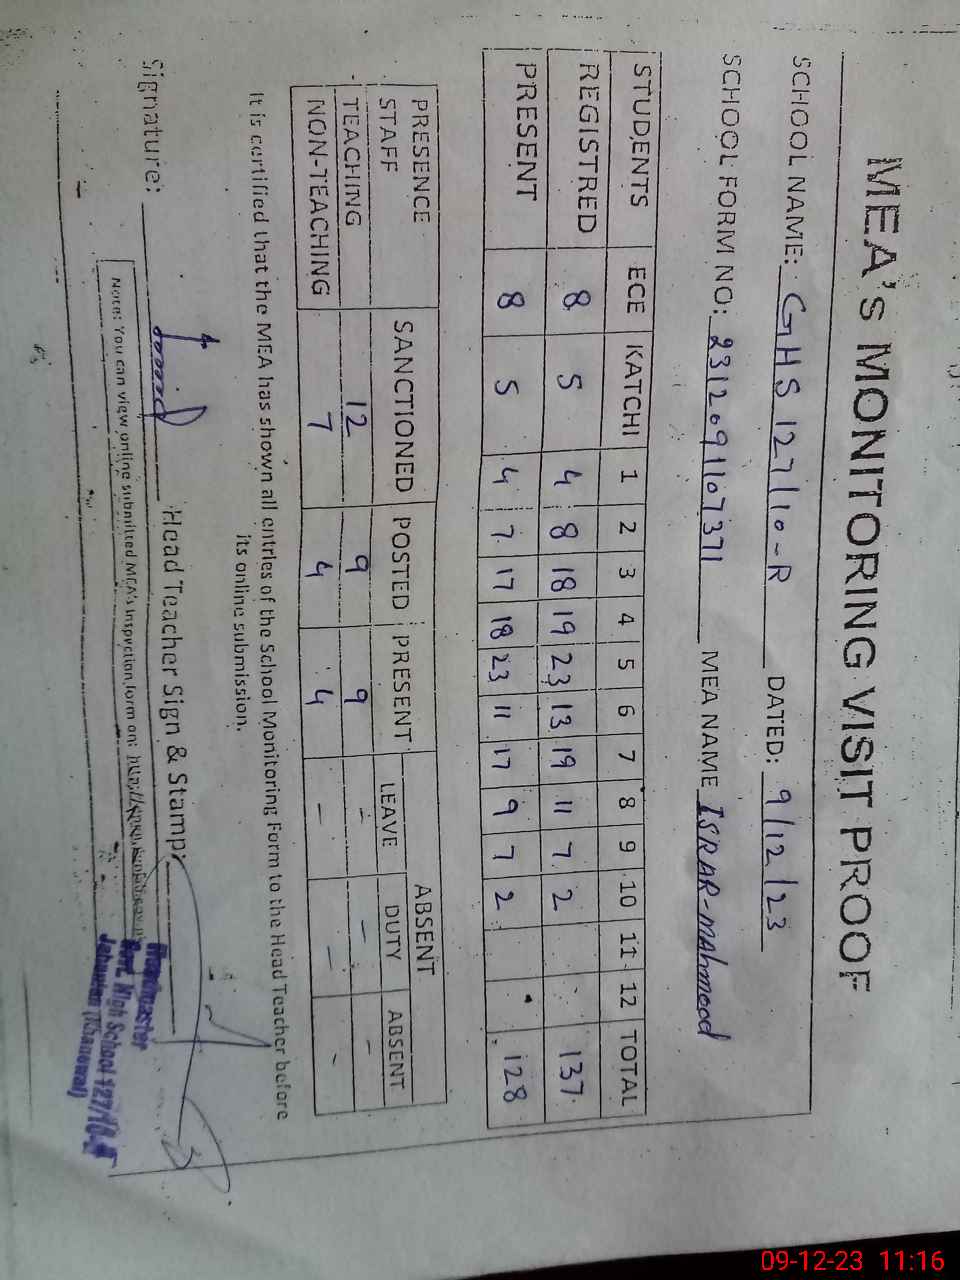 MEA's MONITORING VISIT PROOF
SCHOOL NAME: GHS 127/10-R DATED: 9/12/23
SCHOOL FORM NO: 2312091107371 MEA NAME ISRAR-mahmood
STUDENTS ECE KATCHI 1 2 3 4 5 6 7 8 9 10 11 12 TOTAL
REGISTRED 8 5 4 8 18 19 23 13 19 11 7 2 137
PRESENT 8 5 4 7 17 18 23 11 17 9 7 2 128
PRESENCE STAFF SANCTIONED POSTED PRESENT ABSENT
LEAVE DUTY ABSENT
TEACHING 12 9 9 - - -
NON-TEACHING 7 4 4 - - -
It is certified that the MEA has shown all entries of the School Monitoring Form to the Head Teacher before
its online submission.
Signature: Head Teacher Sign & Stamp:
Headmaster
Govt. High School 127/10-R
Jahanian (Khanewal)
Note: You can view online submitted MEA's Inspection form on:
09-12-23 11:16